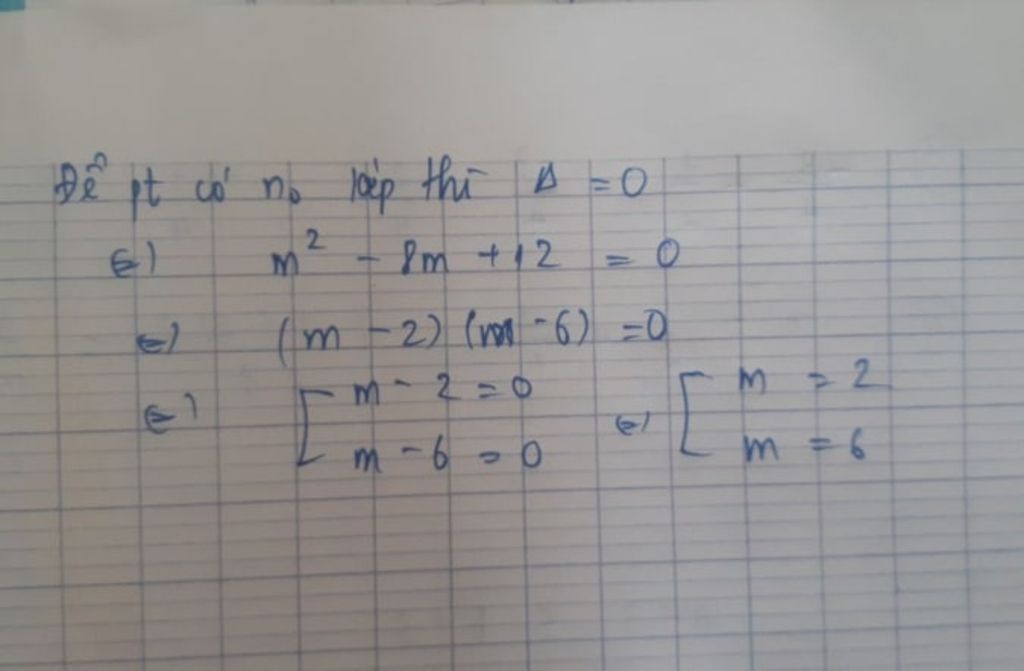 Để pt có no kép thì Δ = 0
⇔ m² - 8m + 12 = 0
⇔ (m - 2) (m - 6) = 0
⇔ [ m - 2 = 0 ⇔ [ m = 2
m - 6 = 0 m = 6